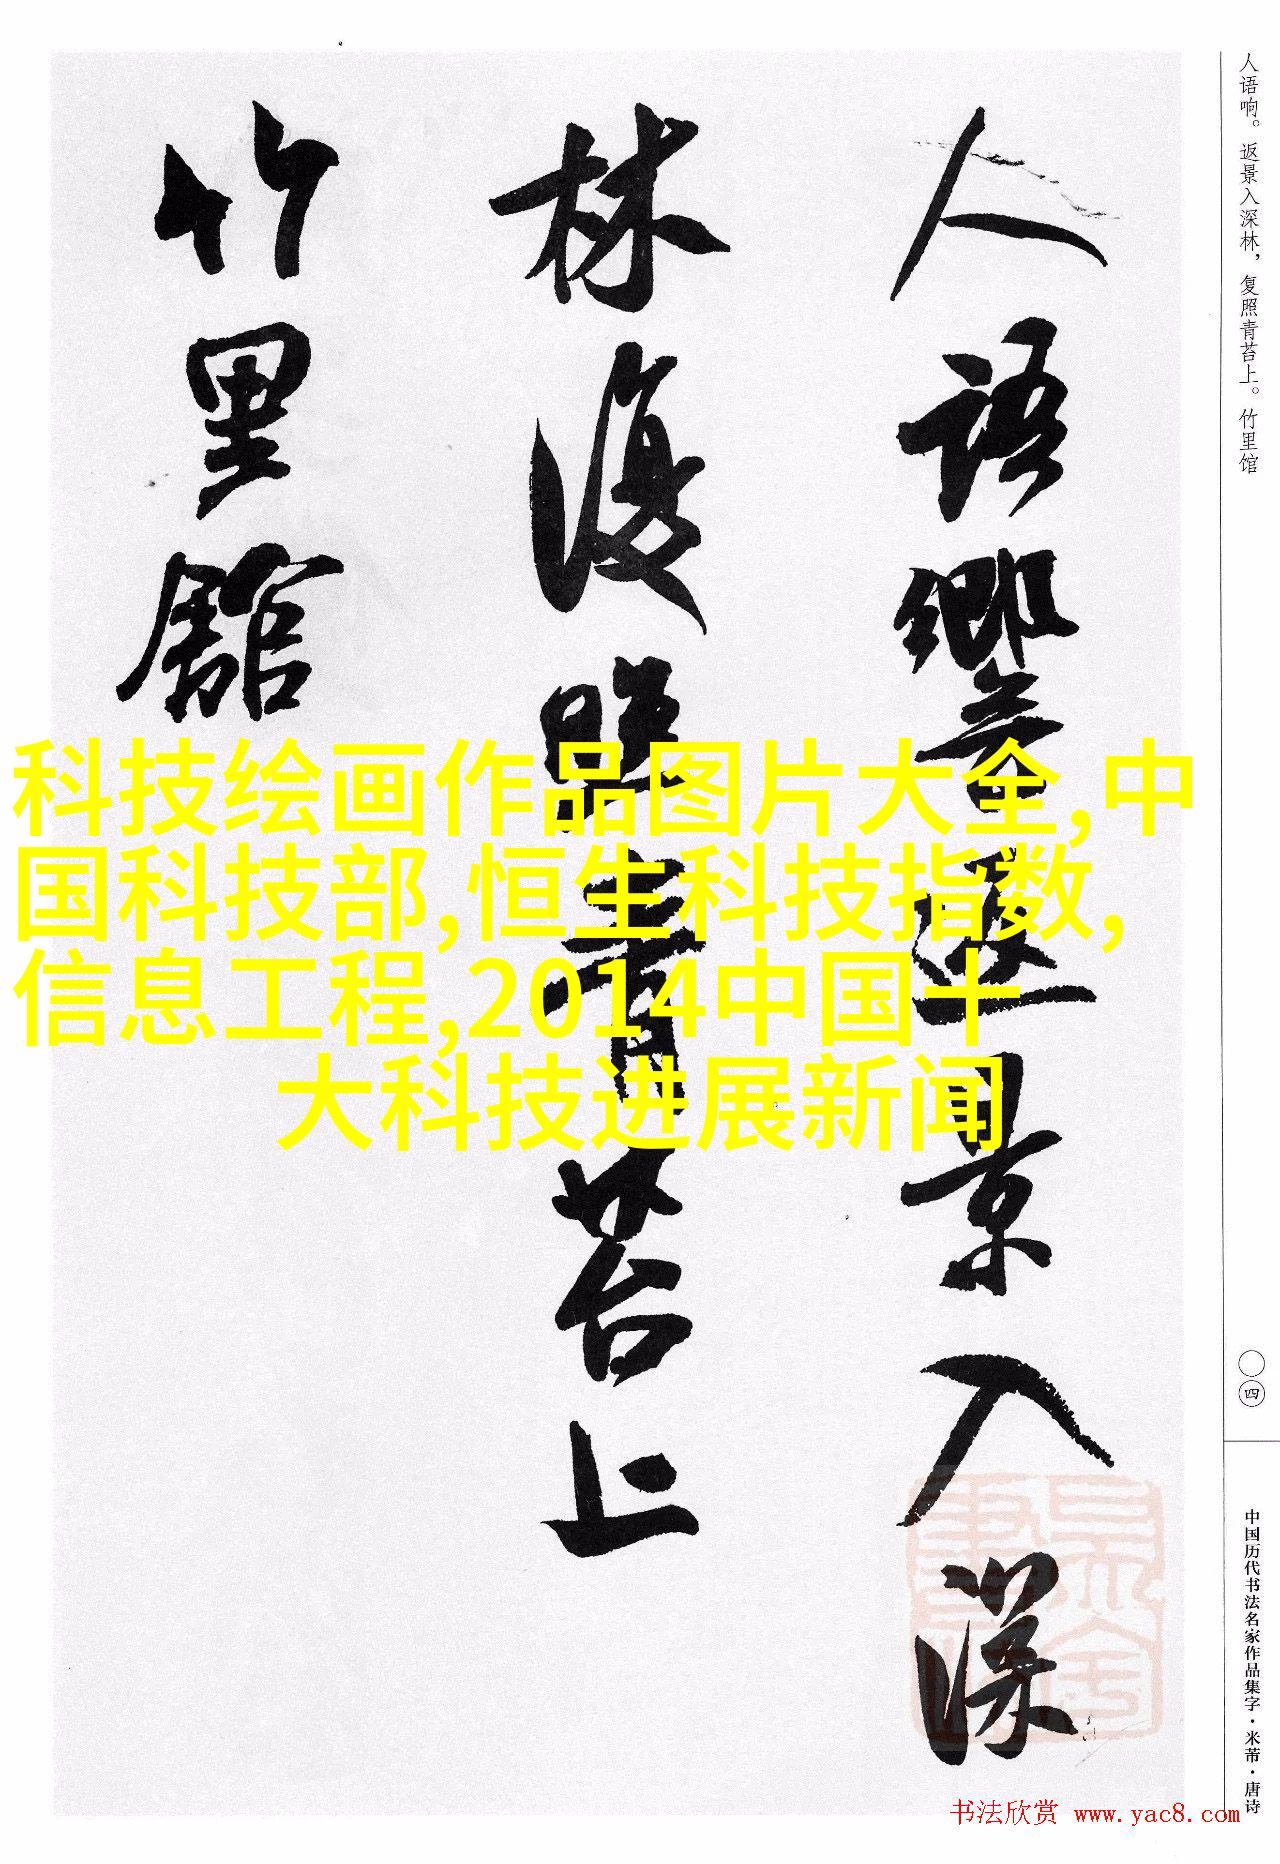 人语响。返景入深林，复照青苔上。竹里馆
人語響返景入深
林復照青苔上
竹里館
科技绘画作品图片大全,中
国科技部,恒生科技指数,
信息工程,2014中国十
大科技进展新闻
〇四
中国历代书法名家作品集字·米芾·唐诗
书法欣赏 www.yac8.com